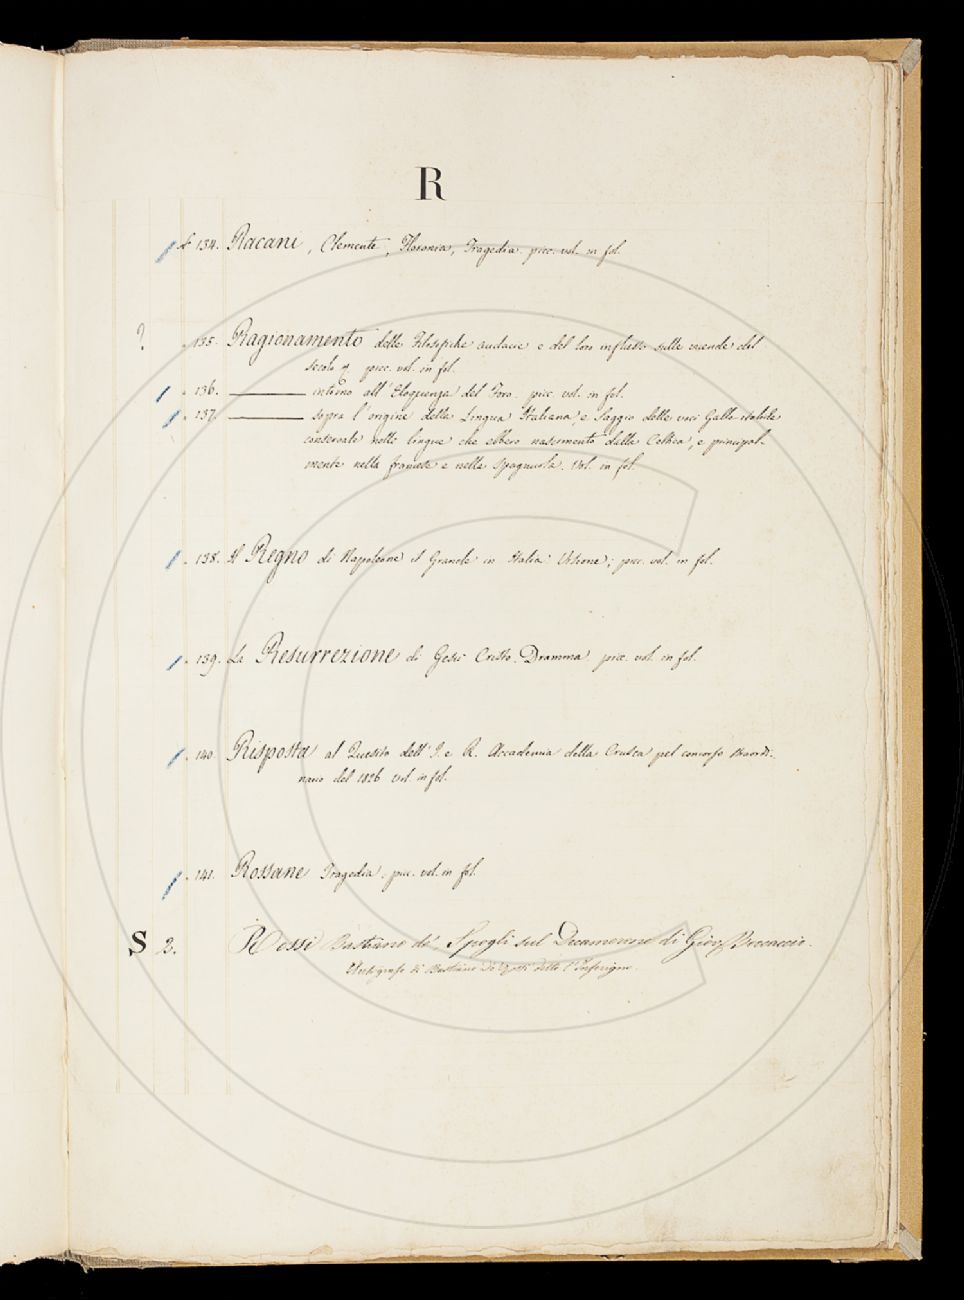 R
134. Racani, Clemente, Tragedia. picc. vol. in fol.
? 135. Ragionamento delle Filosofiche audacie e del loro influsso sulle vicende del
secolo picc. vol. in fol.
136. ——— intorno all'Eloquenza del Foro. picc. vol. in fol.
137. ——— sopra l'origine della Lingua Italiana, e Saggio delle voci Gallo-italiche
conservate nelle lingue che ebbero nascimento dalla Celtica, e principal-
mente nella francese e nella spagnuola. Vol. in fol.
138. Il Regno di Napoleone il Grande in Italia Visione; picc. vol. in fol.
139. La Resurrezione di Gesù Cristo. Dramma. picc. vol. in fol.
140. Risposta al Quesito dell'I. e R. Accademia della Crusca pel concorso straordi-
nario del 1826 vol. in fol.
141. Rossane Tragedia. picc. vol. in fol.
S 2. Rossi Bastiano de' Spogli sul Decamerone di Giov. Boccaccio.
Autografo di Bastiano de' Rossi detto l'Inferigno.